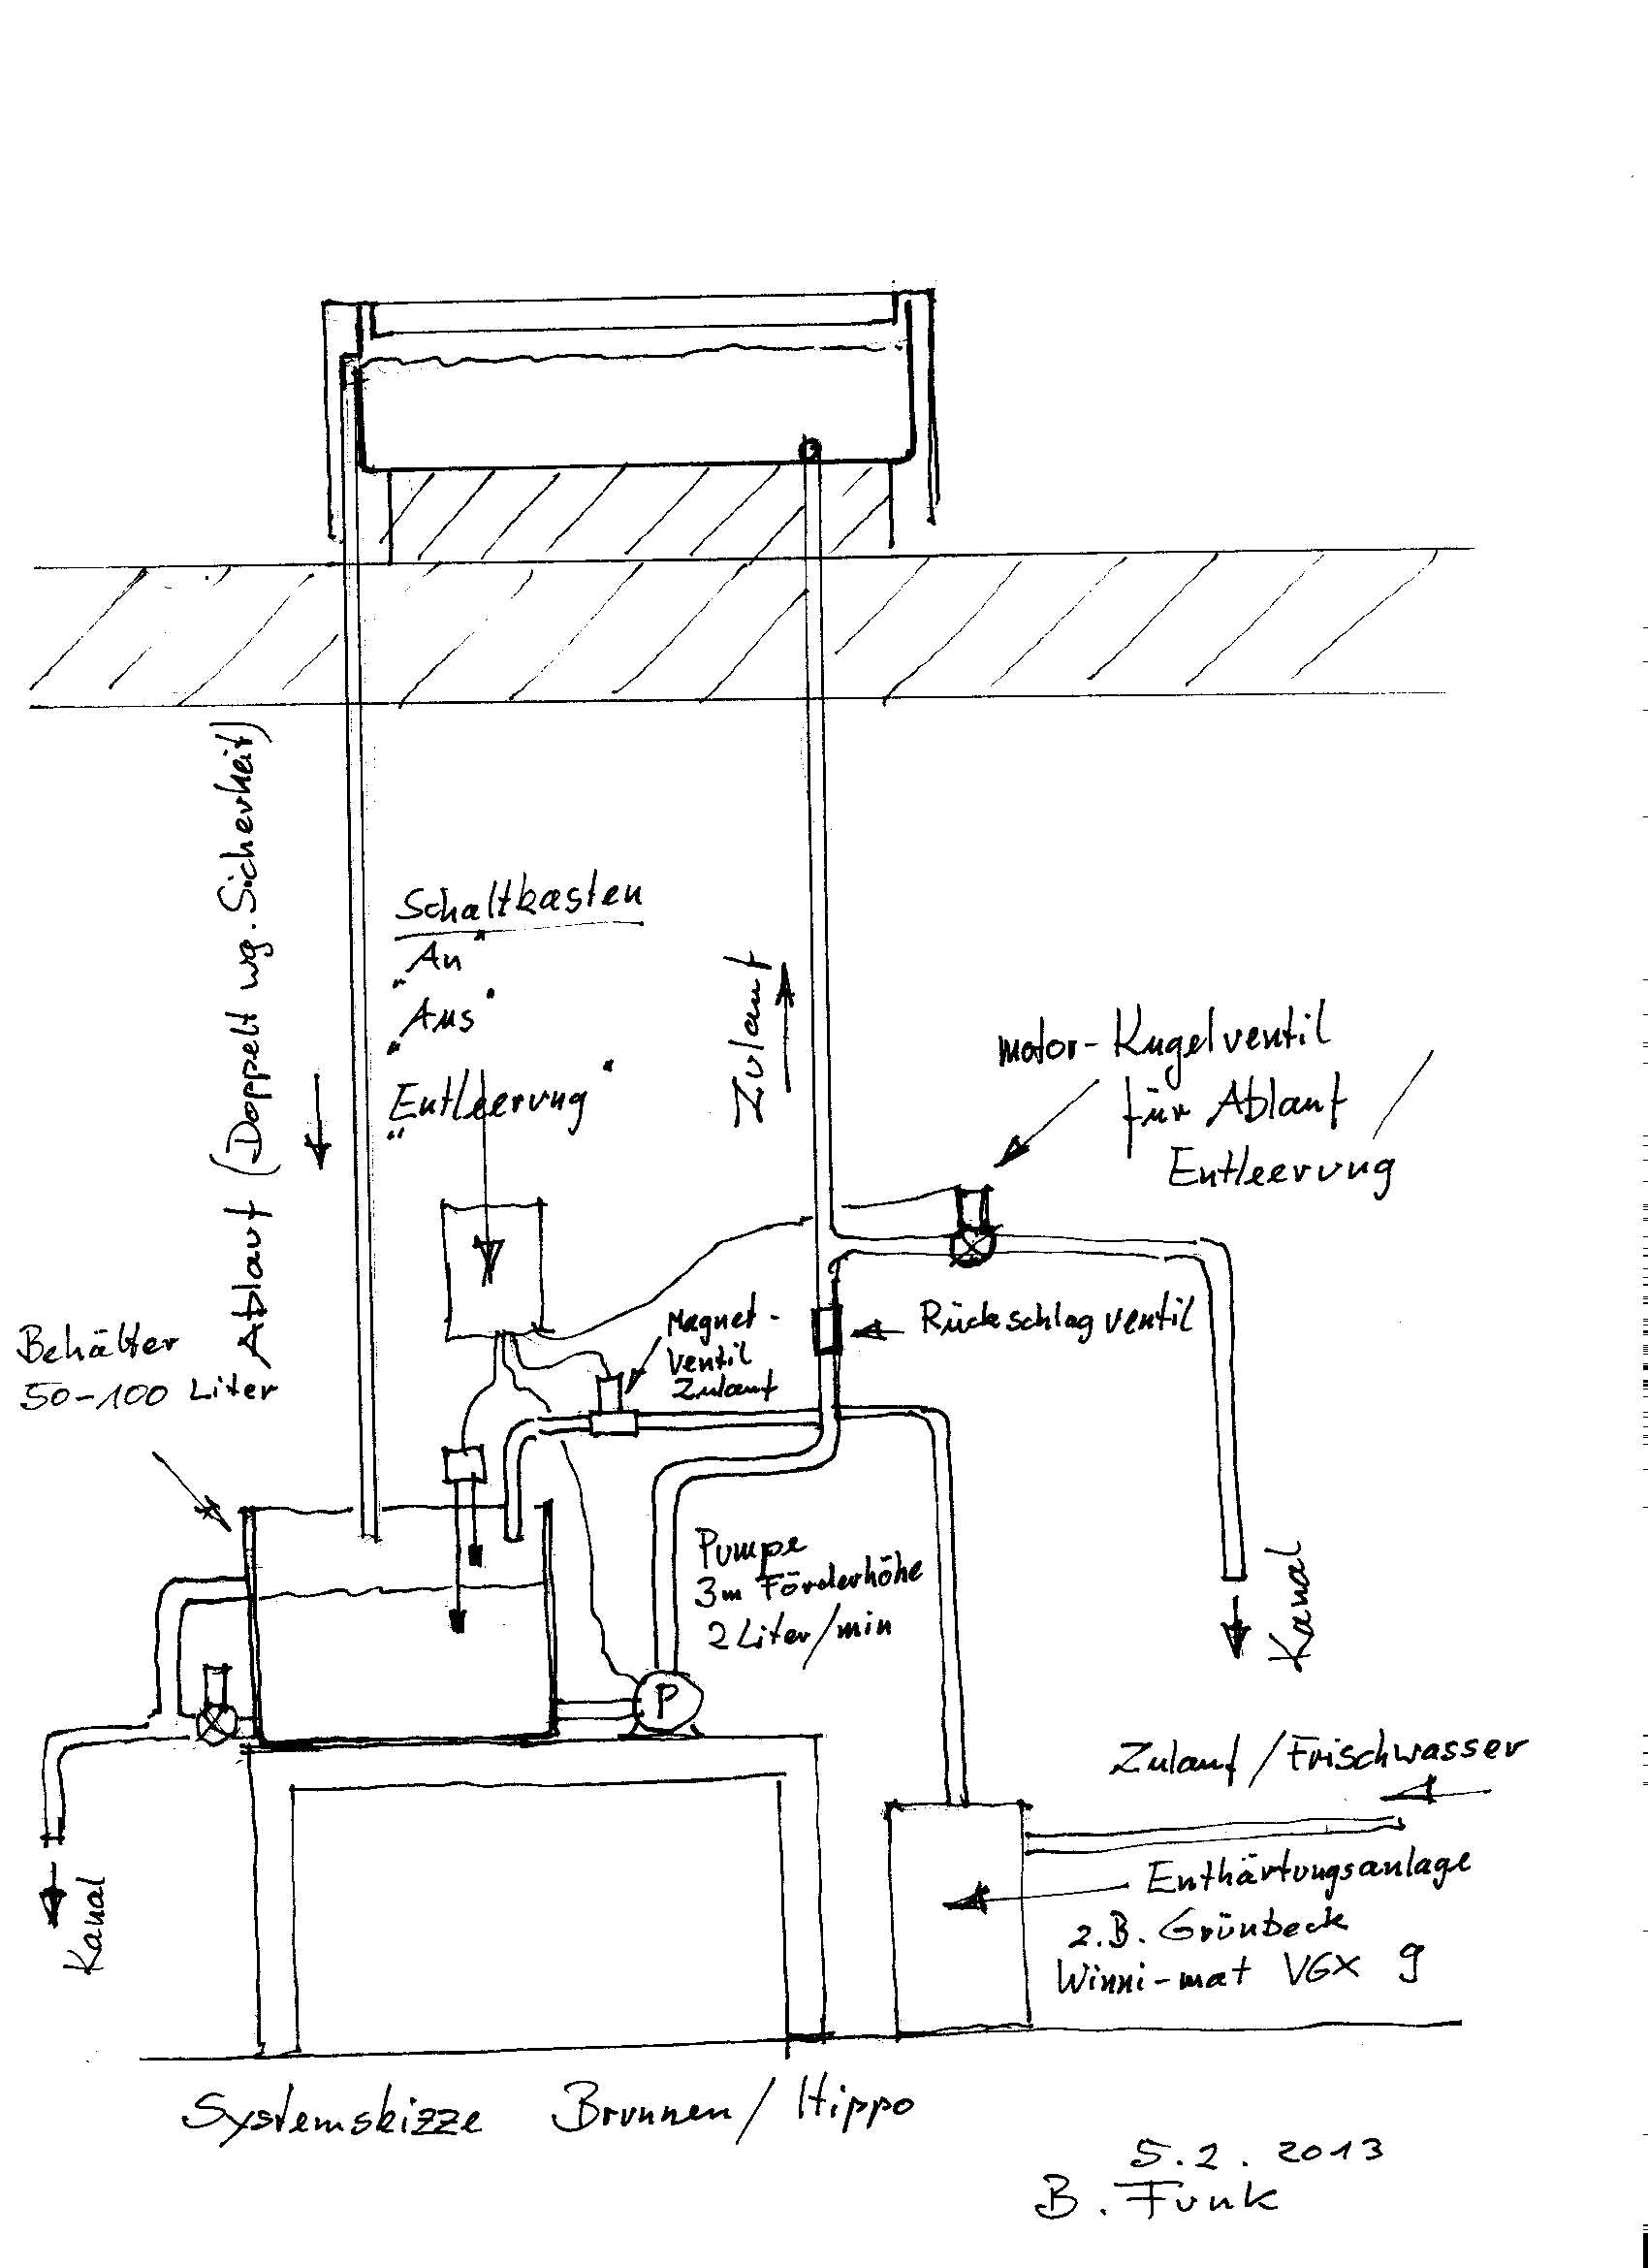 Ablauf (Doppelt wg. Sicherheit)
Schaltkasten
„An"
„Aus"
„Entleerung"
Zulauf
Motor-Kugelventil
für Ablauf
Entleerung
Behälter
50-100 Liter
Magnet-
ventil
Zulauf
Rückschlagventil
Pumpe
3m Förderhöhe
2 Liter/min
P
Kanal
Kanal
Zulauf/Frischwasser
Enthärtungsanlage
z.B. Grünbeck
Winni-mat VGX 9
Systemskizze Brunnen/Hippo
5.2.2013
B. Funk